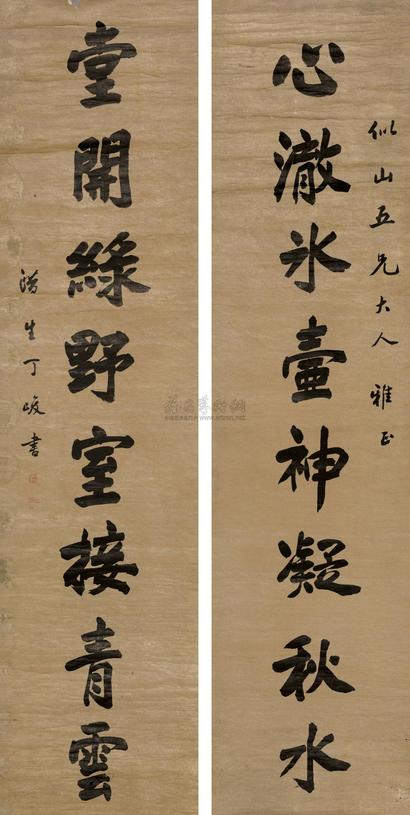 似山五兄大人雅正
心澈冰壺神凝秋水
堂開綠野室接青雲
生丁峻書